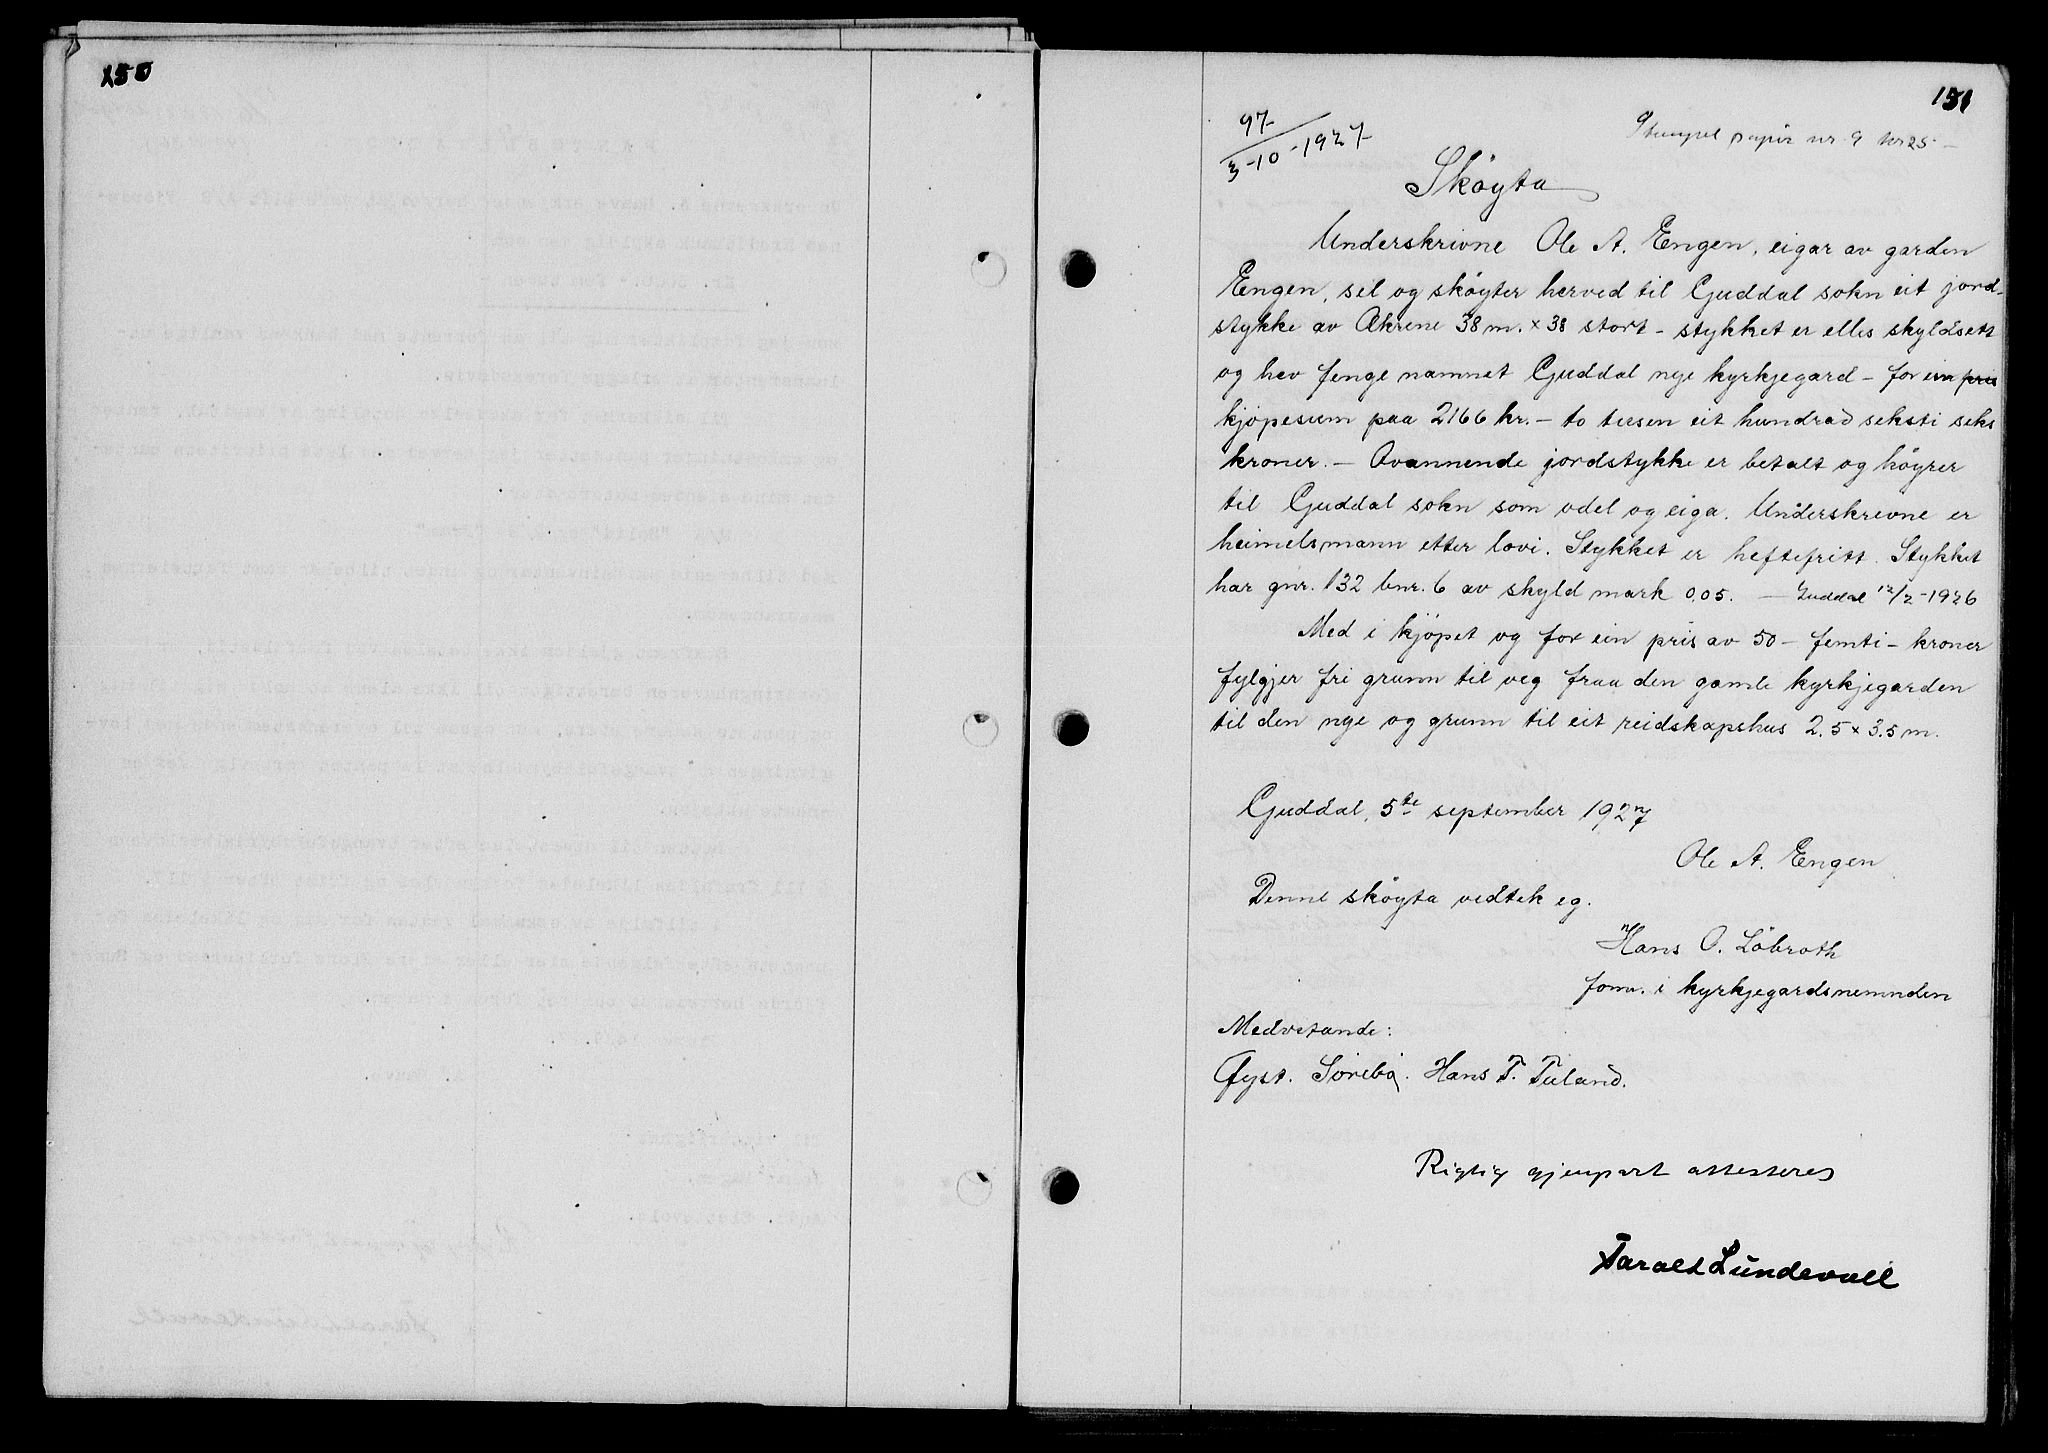 150
151
97
3-10-1927
Stempel papir nr. 9 kr 25.-
Skøyta
Underskrivne Ole A. Engen, eigar av garden
Engen, sel og skøyter herved til Guddal sokn eit jord-
stykke av Åkrene 38 m. x 38 stort - stykket er elles skyldsett
og hev fenge namnet Guddal nye kyrkjegard - for ein pris
kjøpesum paa 2166 kr. - to tusen eit hundrad seksti seks
kroner. - Ovannemnde jordstykke er betalt og høyrer
til Guddal sokn som odel og eiga. Underskrevne er
heimelsmann etter lovi. Stykket er heftefritt. Stykket
har gnr. 132 bnr. 6 av skyld mark 0,05. - Guddal 12/2-1926
Med i kjøpet og for ein pris av 50 - femti - kroner
fylgjer fri grunn til veg fraa den gamle kyrkjegarden
til den nye og grunn til eit reidskapshus 2.5 x 3.5 m.
Guddal, 5te september 1927
Ole A. Engen
Denne skøyta vedtek eg.
Hans O. Løbroth
form. i kyrkjegardsnemnden
Medvetande:
Øyst. Sørebø. Hans T. Tuland.
Rigtig gjenpart attesteres
Harald Lundevall